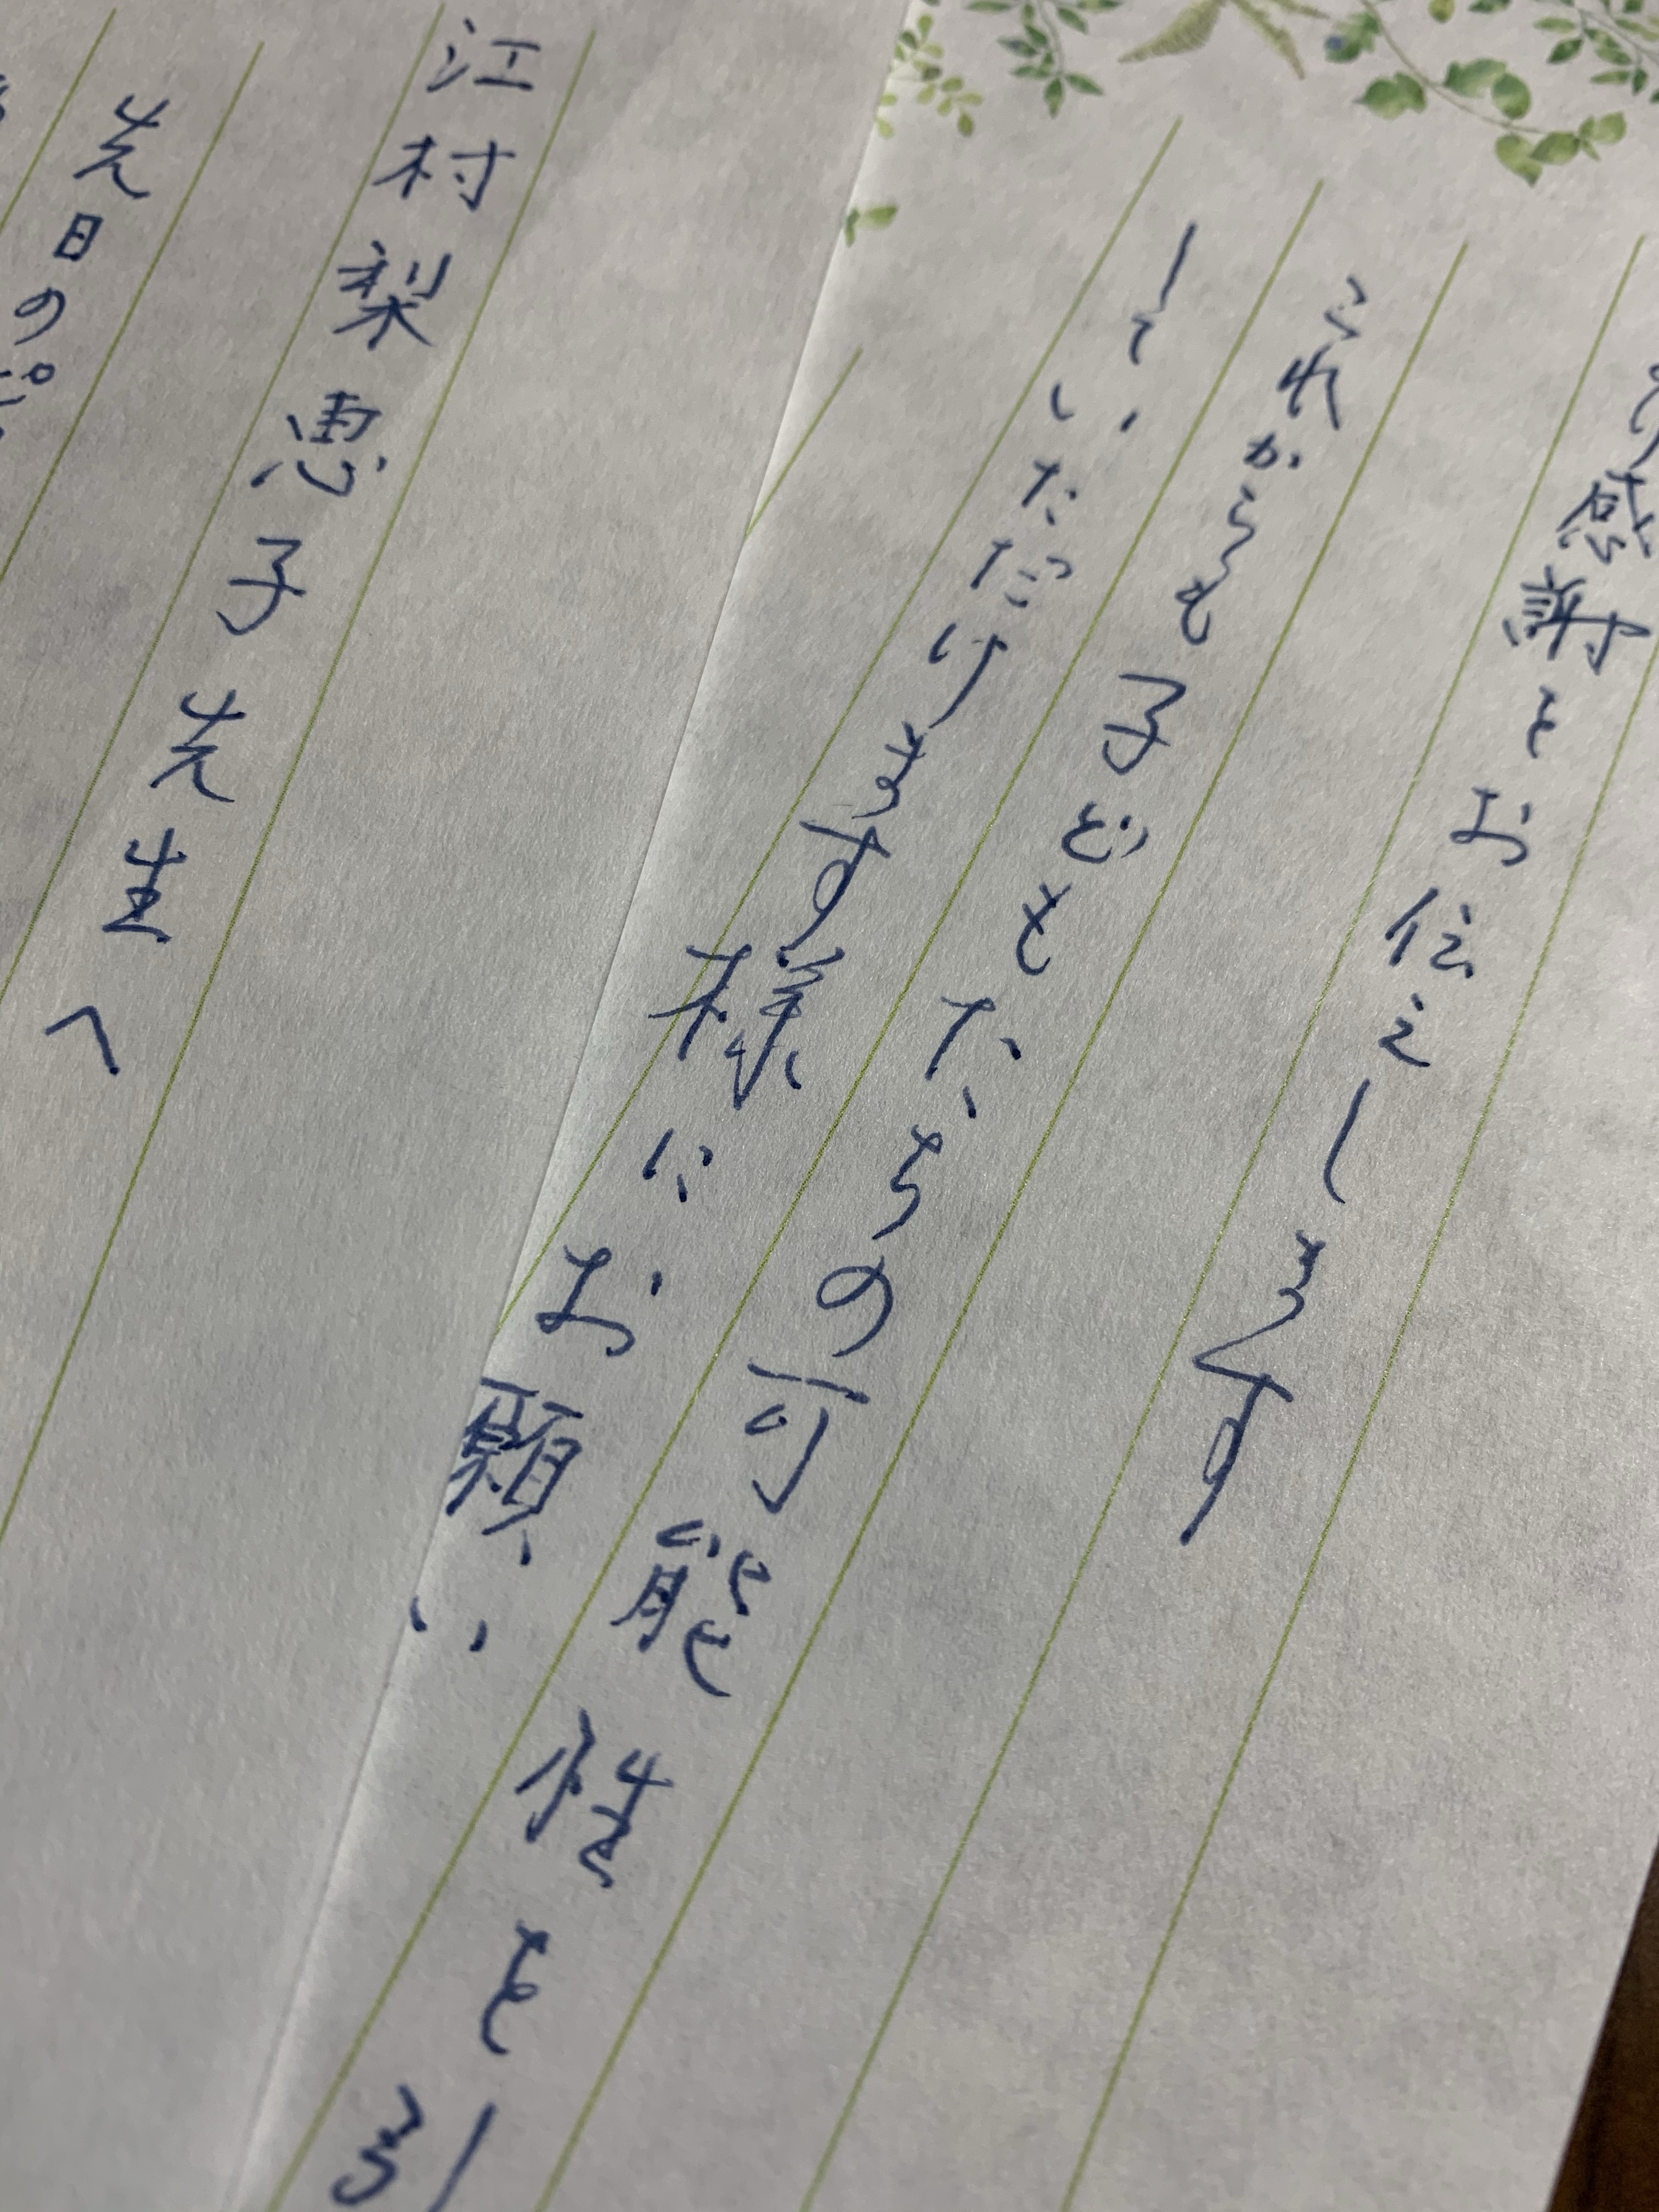 江村梨恵子先生へ
先日のピ
り感謝をお伝えします
これからも子どもたちの可能性を引
していただけます様にお願い